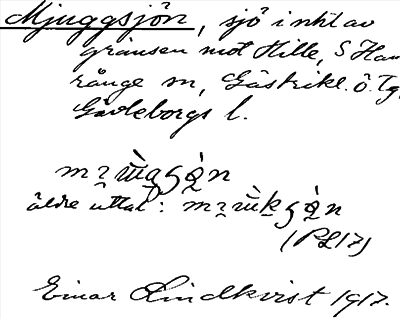 Mjuggsjön, sjö i nht av
gränsen mot Hille, S Ham
rånge sn, Gästrikl. ö. Tg,
Gävleborgs l.
äldre uttal:
(PL17)
Einar Lindkvist 1917.